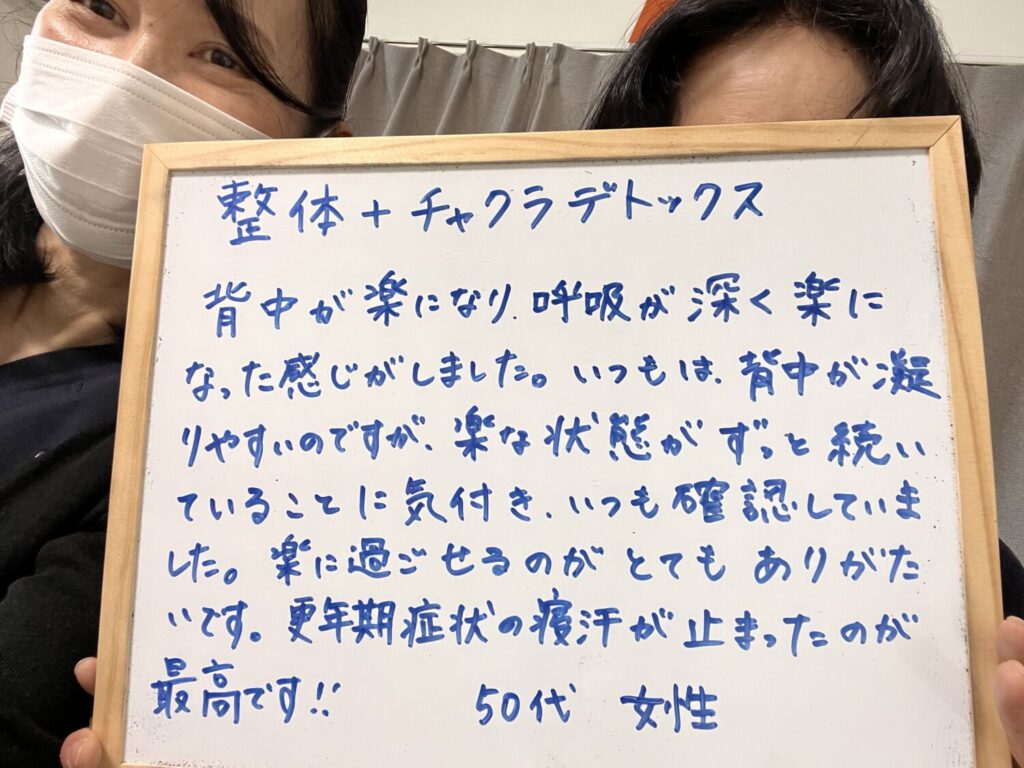 整体+チャクラデトックス
背中が楽になり、呼吸が深く楽に
なった感じがしました。いつもは、背中が凝
りやすいのですが、楽な状態がずっと続い
ていることに気付き、いつも確認していま
した。楽に過ごせるのがとてもありがた
いです。更年期症状の寝汗が止まったのが
最高です!!
50代 女性